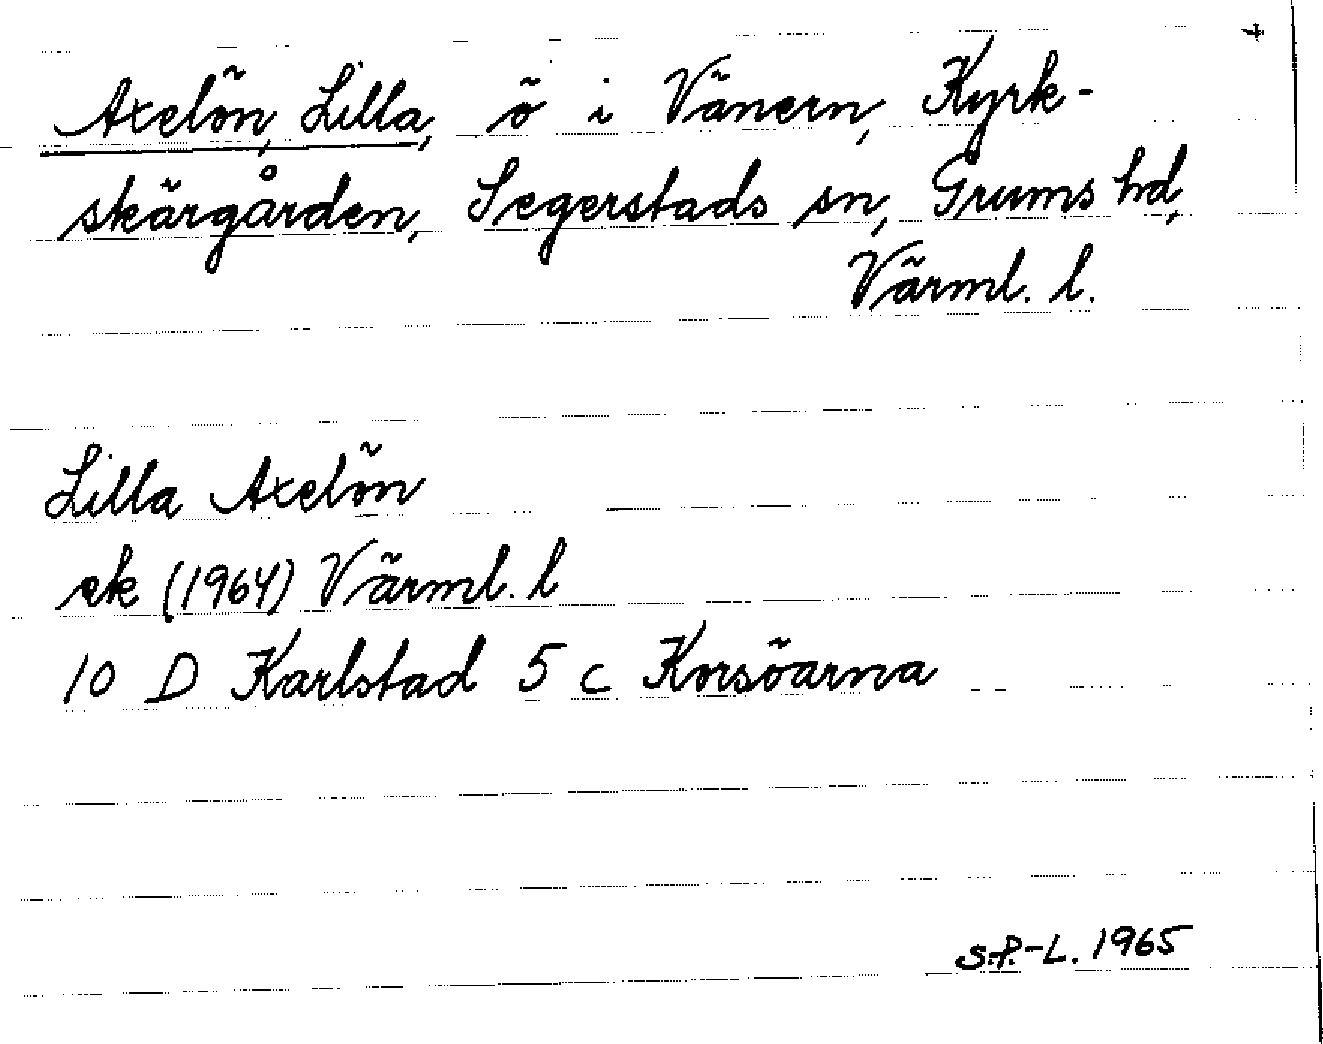 Axelön, Lilla, ö i Vänern, Kyrk-
skärgården, Segerstads sn, Grums hd,
Värml. l.
Lilla Axelön
ek (1964) Värml. l
10 D Karlstad 5 c Korsöarna
S.P.-L. 1965